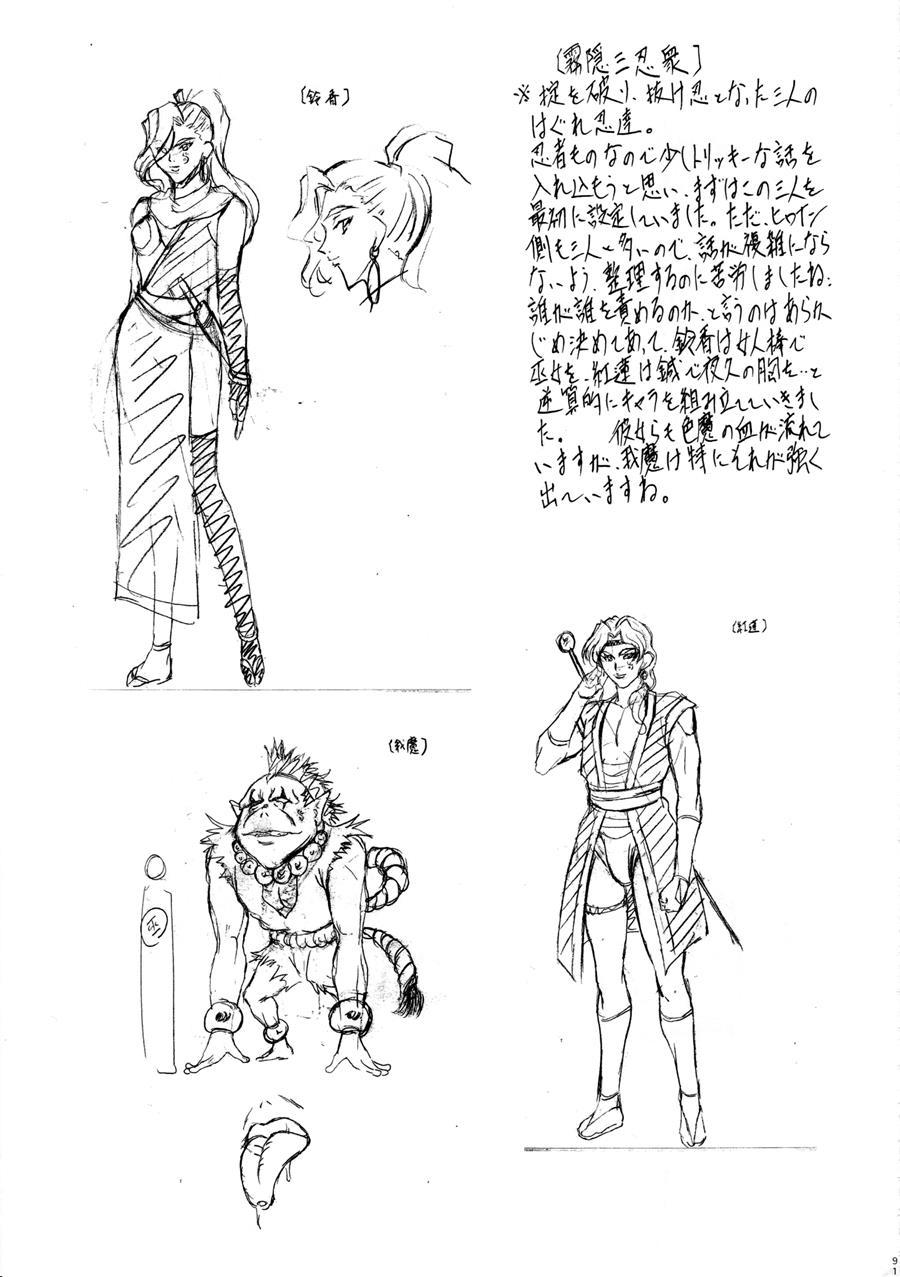 〔霧隠三忍衆〕
※掟を破り、抜け忍となった三人の
はぐれ忍達。
忍者ものなので少しトリッキーな話を
入れ込もうと思い、まずはこの三人を
最初に設定していました。ただ、ヒロイン
側も三人と多いので、話が複雑になら
ないよう、整理するのに苦労しましたね。
誰が誰を責めるのか、と言うのはあらか
じめ決めてあって、鈴香は女人棒で
巫女を、紅蓮は鍼で夜久の胸を…と
逆算的にキャラを組み立てていきまし
た。 彼女らも色魔の血が流れて
いますが、我魔は特にそれが強く
出ていますね。
〔鈴香〕
〔紅蓮〕
〔我魔〕
巫
91